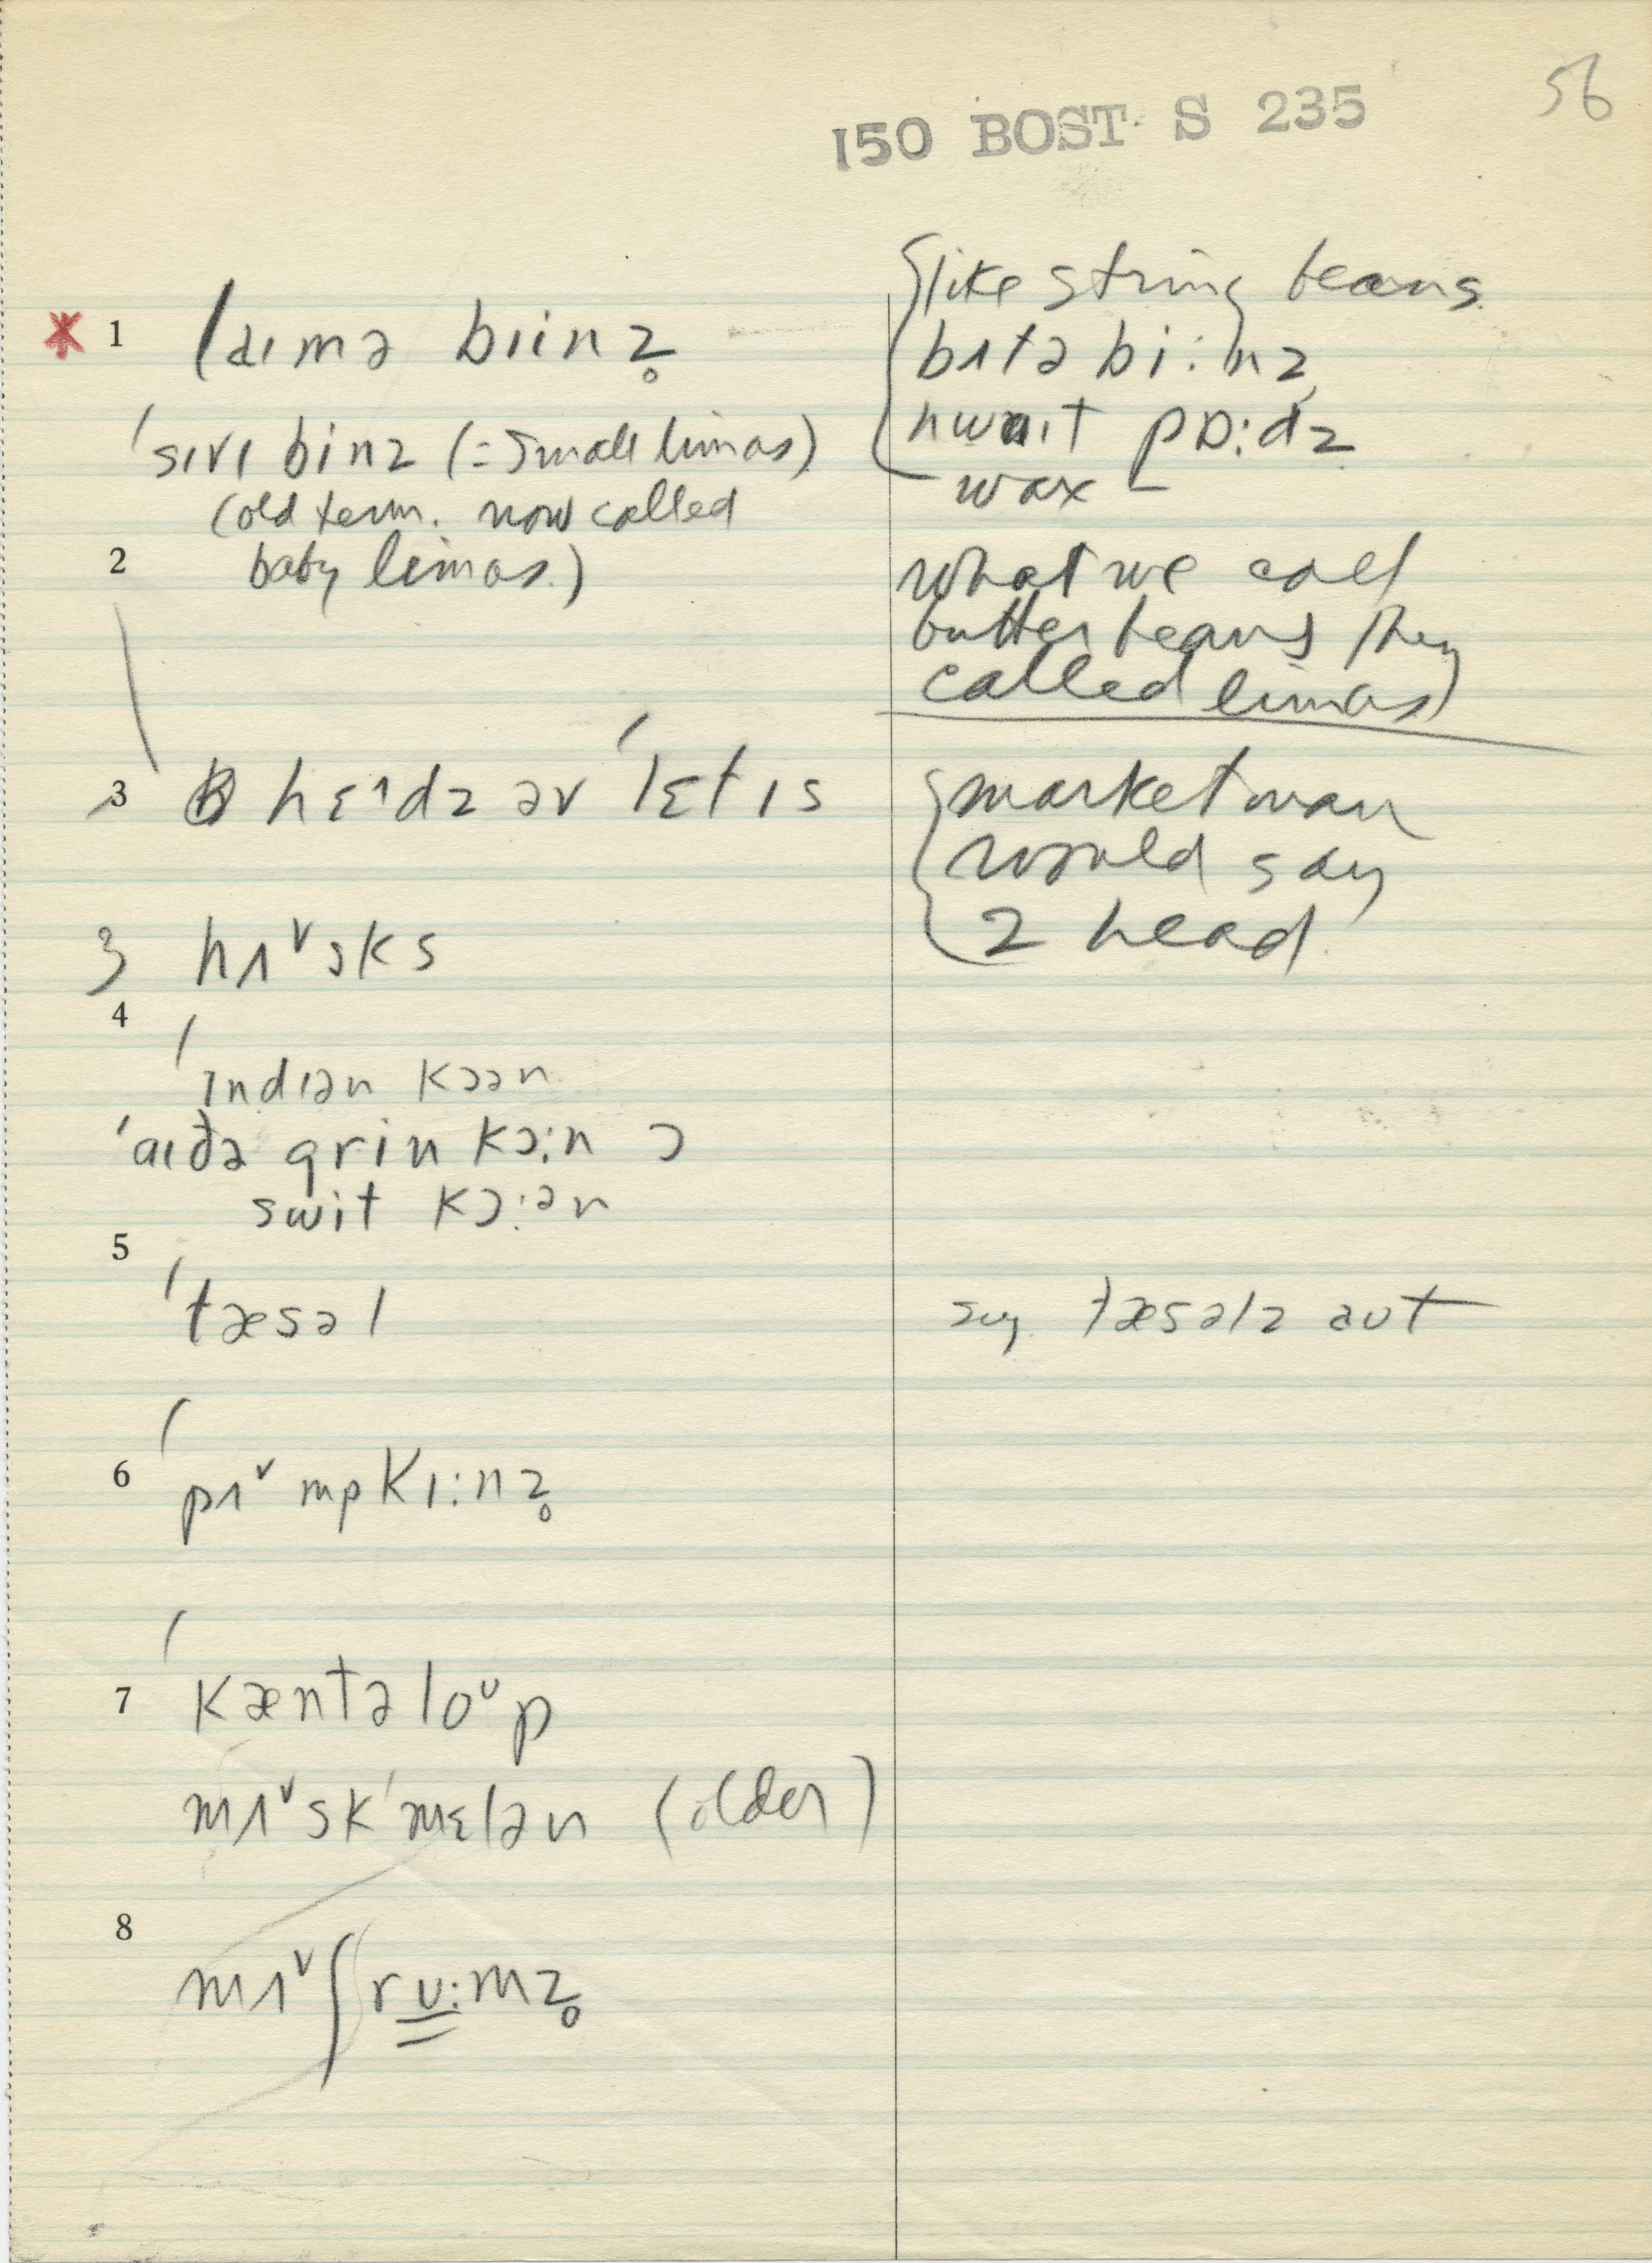 56
150 BOST S 235
1 laɪmə bɪinz̥
ˈsɪvɪ binz (= small limas)
(old term. now called
baby limas.)
{like string beans
bʌtə bi:nz
hwaɪt pɒ:dz
wax –
2
what we call
butter beans they
called limas)
3 hɛ˄dz əv ˈlɛtɪs
{market man
would say
2 head
3 hʌ˅sks
4
ˈɪndɪən kɔən
ˈaɪðə grin kɔ:n ɔ
swit kɔ:ən
5
ˈtæsəl
say tæsəlz aut
6 ˈpʌ˅mpkɪ:nz̥
7 ˈkæntəloᶷp
mʌ˅skˈmɛlən (older)
8
mʌ˅ʃrʊ:mz̥